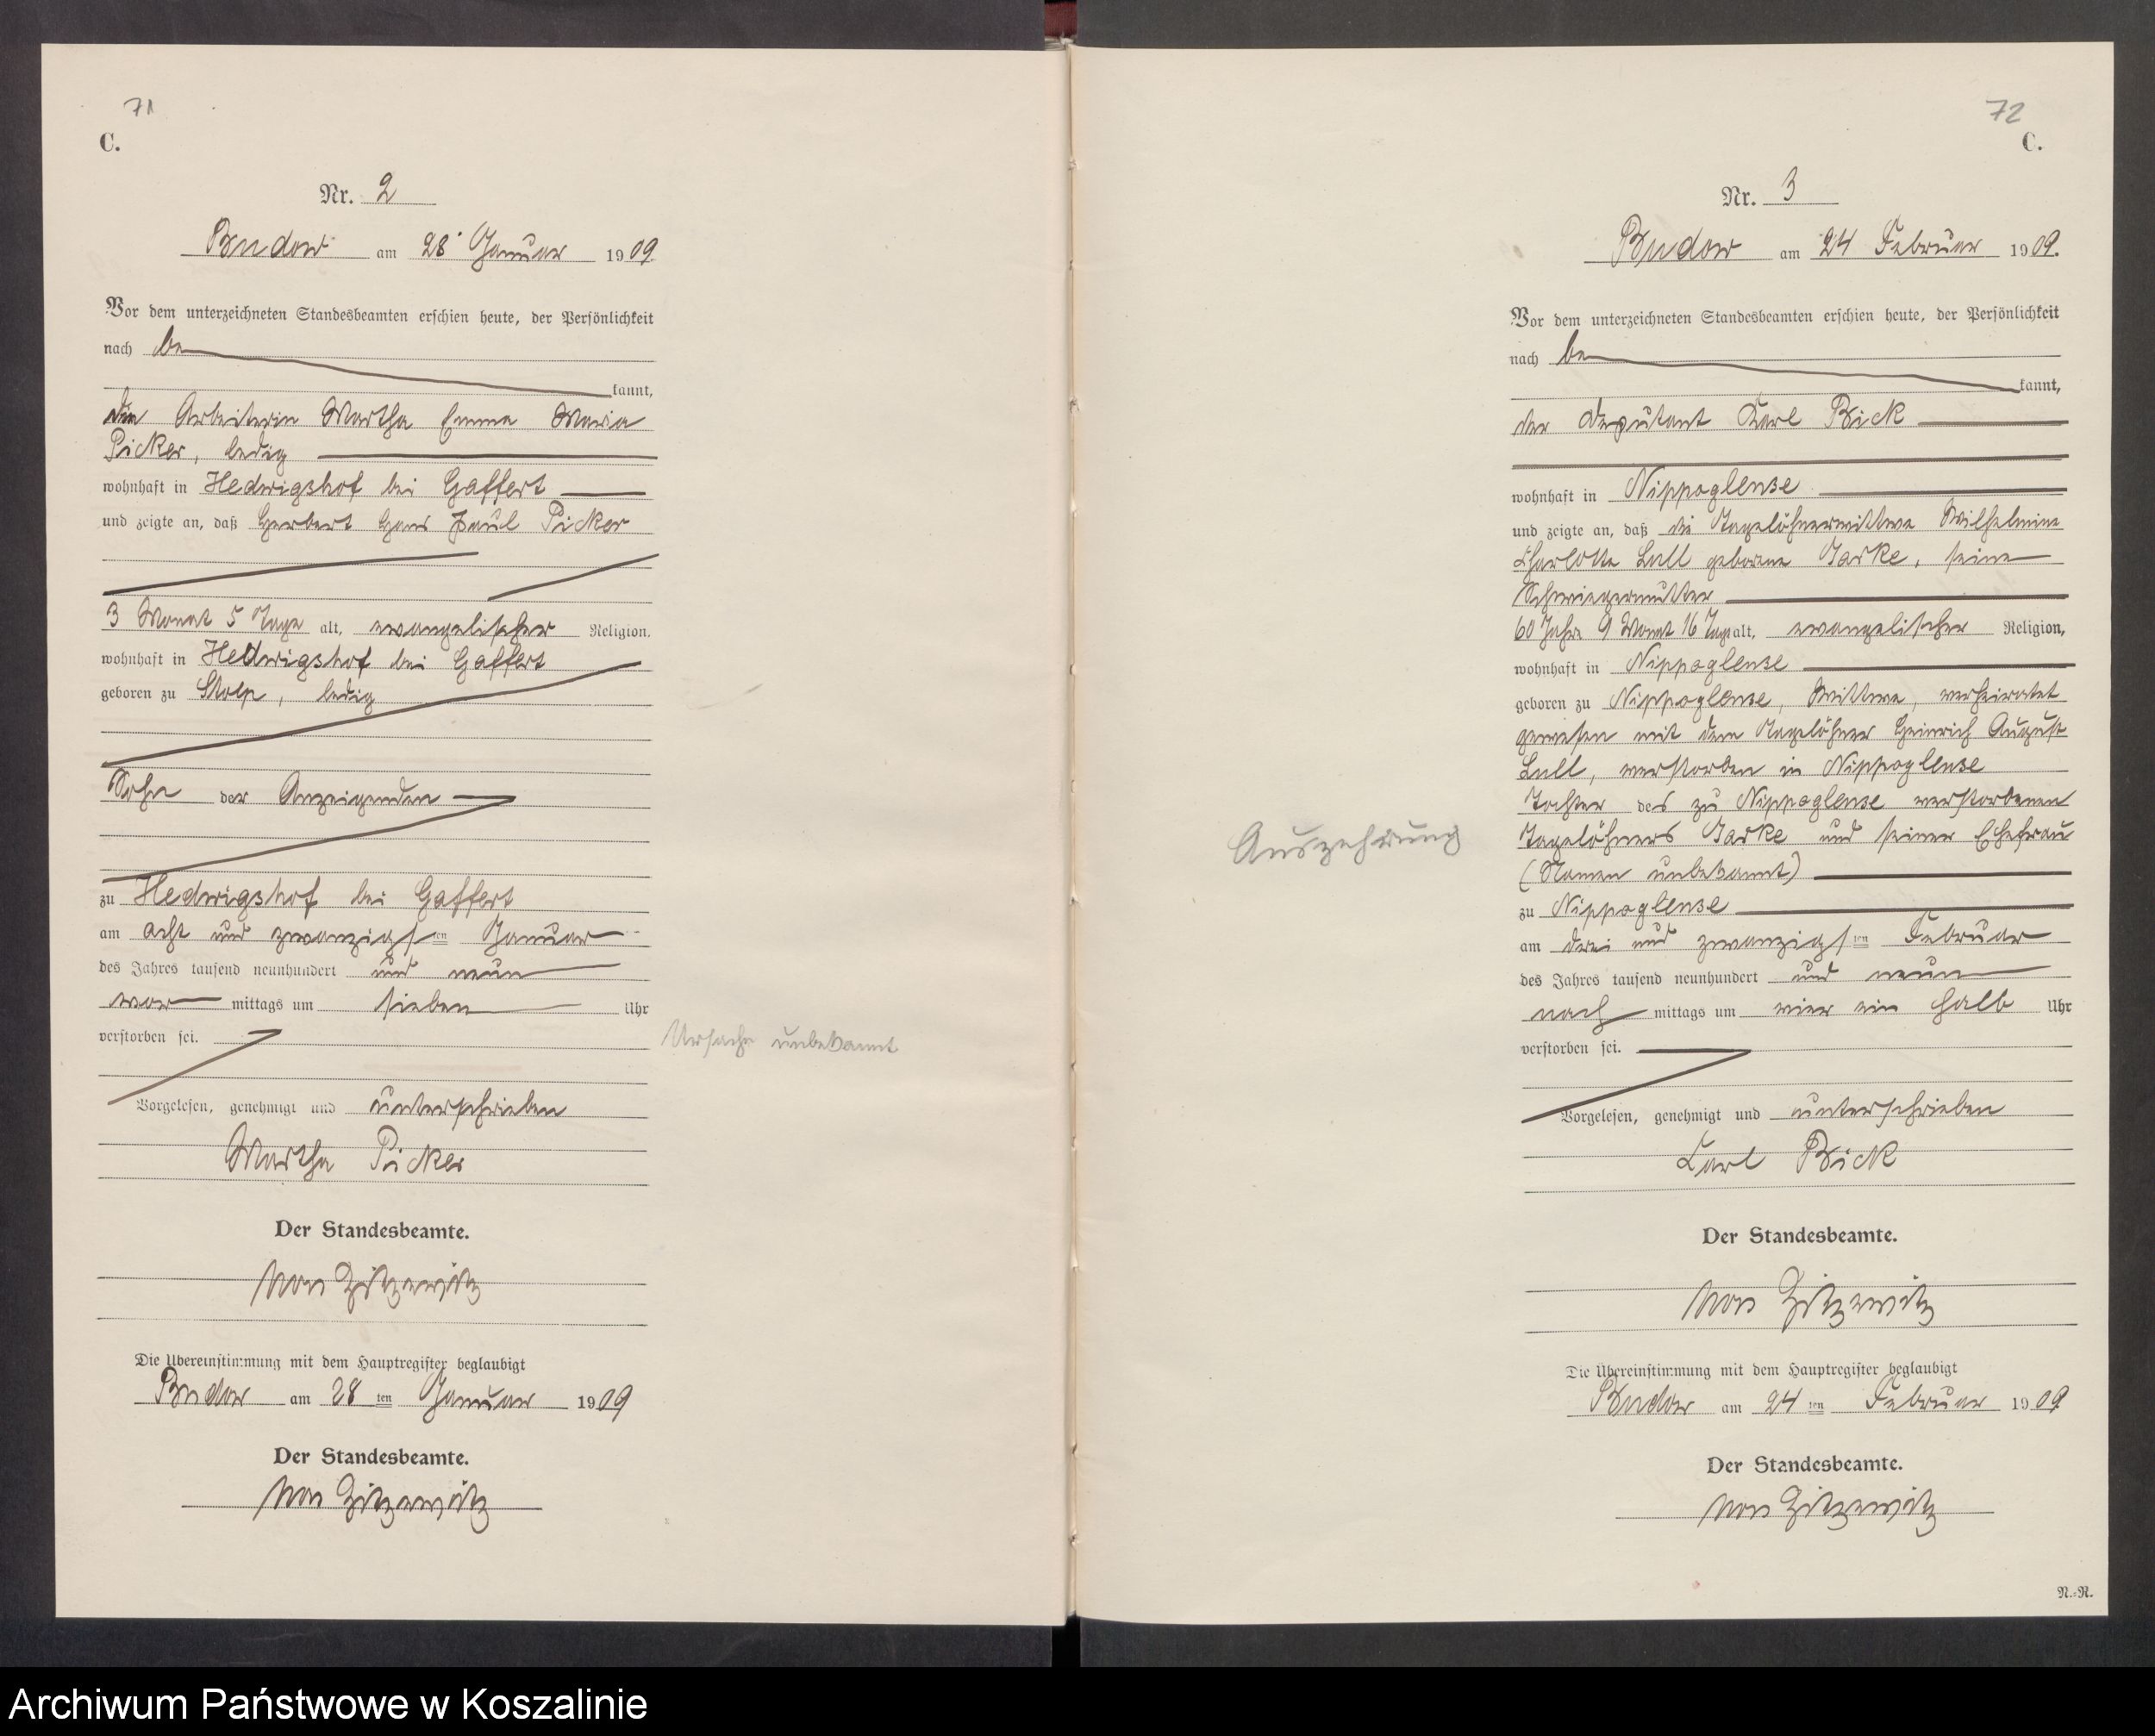 71
C.
Nr. 2
Budow am 28. Januar 1909.
Vor dem unterzeichneten Standesbeamten erschien heute, der Persönlichkeit
nach be
kannt,
die Arbeiterin Martha Emma Maria
Picker, ledig
wohnhaft in Hedwigshof bei Gaffert
und zeigte an, daß Herbert Hans Paul Picker
3 Monat 5 Tage alt, evangelischer Religion,
wohnhaft in Hedwigshof bei Gaffert
geboren zu Stolp, ledig
Sohn der Anzeigenden
zu Hedwigshof bei Gaffert
am acht und zwanzigsten Januar
des Jahres tausend neunhundert und neun
vor mittags um sieben Uhr
verstorben sei.
Ursache unbekannt
Vorgelesen, genehmigt und unterschrieben
Martha Picker
Der Standesbeamte.
von Zitzewitz
Die Übereinstimmung mit dem Hauptregister beglaubigt
Budow am 28ten Januar 1909
Der Standesbeamte.
von Zitzewitz
72
C.
Nr. 3
Budow am 24 Februar 1909.
Vor dem unterzeichneten Standesbeamten erschien heute, der Persönlichkeit
nach be
kannt,
der Deputant Karl Bick
wohnhaft in Nippoglense
und zeigte an, daß die Tagelöhnerwittwe Wilhelmine
Charlotte Lull geborene Jarke, seine
Schwiegermutter
60 Jahre 9 Monat 16 Tage alt, evangelischer Religion,
wohnhaft in Nippoglense
geboren zu Nippoglense, Wittwe, verheiratet
gewesen mit dem Tagelöhner Heinrich August
Lull, verstorben in Nippoglense
Tochter des zu Nippoglense verstorbenen
Tagelöhners Jarke und seiner Ehefrau
(Namen unbekannt)
Auszehrung
zu Nippoglense
am drei und zwanzigsten Februar
des Jahres tausend neunhundert und neun
nach mittags um vier ein halb Uhr
verstorben sei.
Vorgelesen, genehmigt und unterschrieben
Carl Bick
Der Standesbeamte.
von Zitzewitz
Die Übereinstimmung mit dem Hauptregister beglaubigt
Budow am 24ten Februar 1909
Der Standesbeamte.
von Zitzewitz
N.-N.
Archiwum Państwowe w Koszalinie